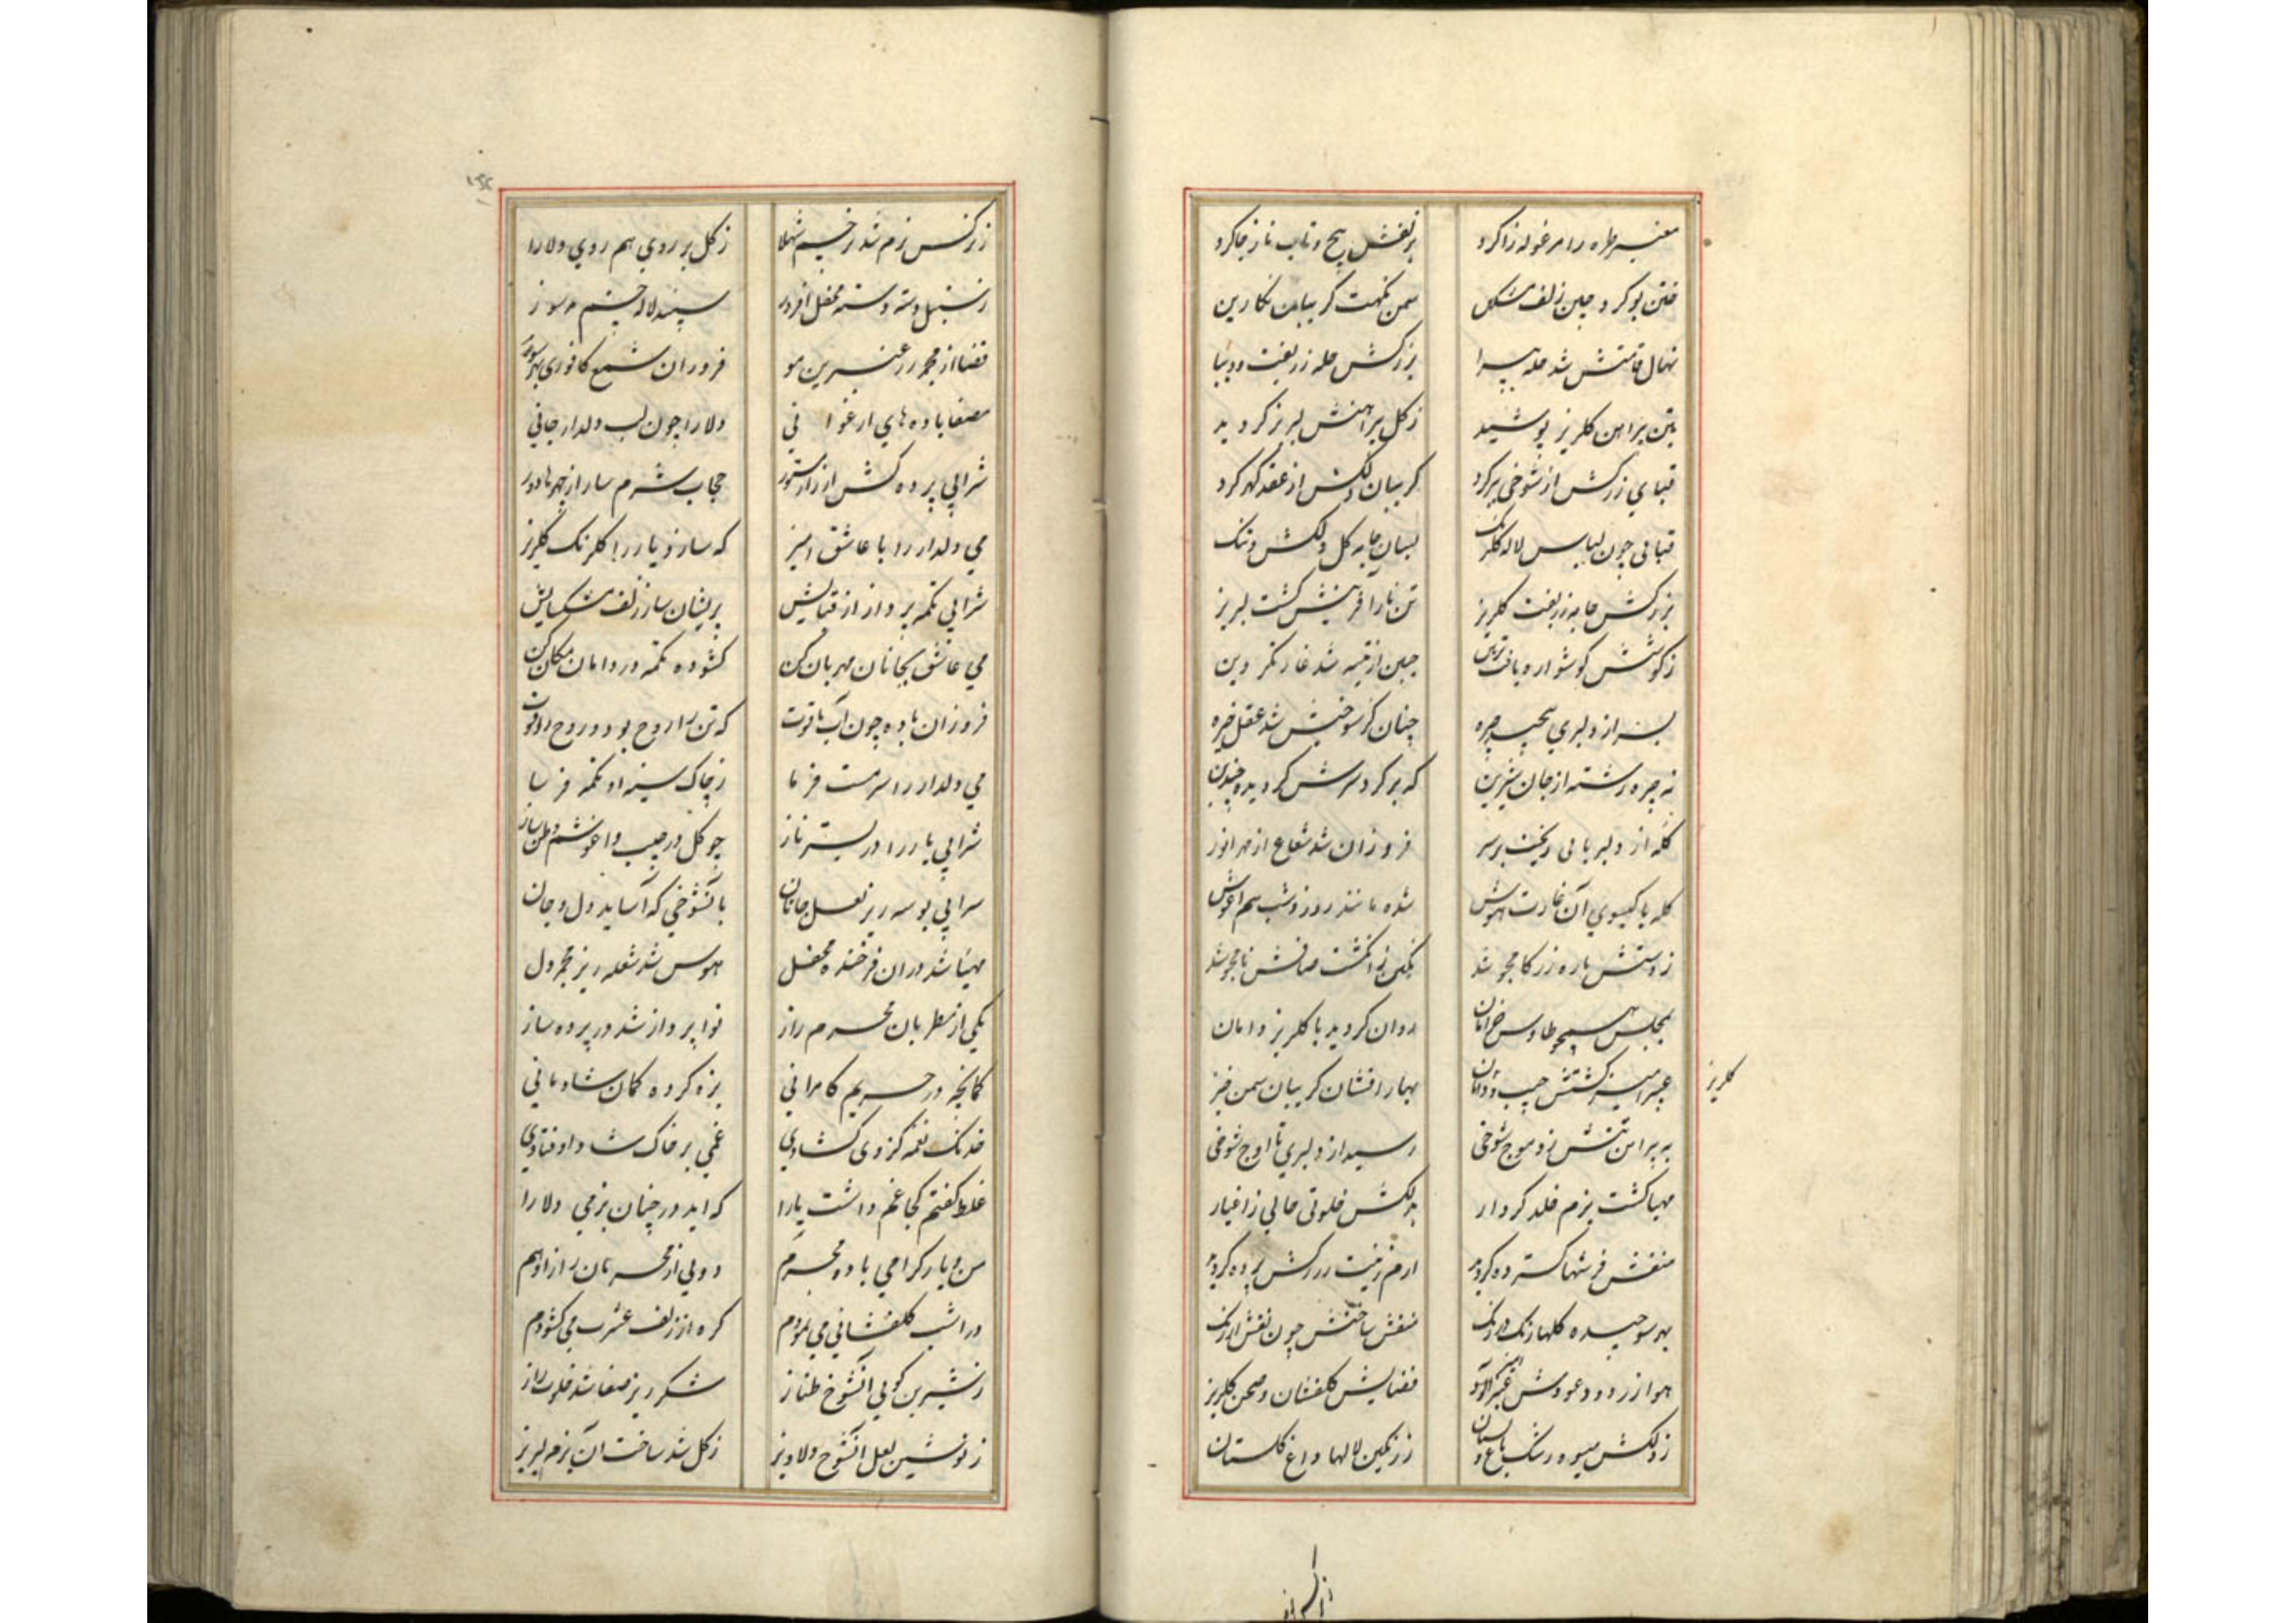 معنبر طره را مرغوله زا کرد بزلفش پیچ و تاب ناز جا کرد
ختن بو کرد چین زلف مشکین سمن نکهت کریبان نکارین
نهال قامتش شد حله پیرا بزرکش حله زربفت و دیبا
بتن پیراهن کلریز پوشید ز کل پیراهنش لبریز کردید
قبای زرکش از شوخی ببر کرد کریبان دلکش از عقد کهر کرد
قبائی چون لباس لاله کلرنک بسان جامه کل دلکش و تنک
بزرکش جامه زربفت کلریز تن نازآفرینش کشت لبریز
ز کوشش کوشواره یافت تزیین جبین از شد غارتکر دین
بسر از دلبری پیچید چیره چنان کز شوخیش شد عقل خیره
نه چیره رشته از جان شیرین که بر کرد سرش کردیده چندین
کله از دلربائی ریخت بر سر فروزان شد شعاع از مهر انور
کله با کیسوی آن غارت هوش شده مانند روز و شب هم آغوش
ز دستش یاره زر کامجو شد نکین ز انکشت صافش نامجو شد
بمجلس همچو طاوس خرامان روان کردید با کلریز دامان
عبیرآمیز کشتش جیب و دامان بهار افشان کریبان سمن خیز
کلریز
به پیراهن تنش زد موج شوخی رسید از دلبری تا اوج شوخی
مهیا کشت بزم خلد کردار بدلکش خلوتی خالی ز اغیار
منقش فرشها کسترده کردند ارم زینت زرکش پرده کردند
بهر سو چیده کلها رنک در رنک منقش ساختش چون نقش ارژنک
هوا از دود عودش عنبرآلود فضایش کلفشان و صحن کلریز
ز دلکش میوه رشک باغ و بستان ز رنکین لالها داغ کلستان
ز نرکس بزم شد چشم شهلا ز کل بر روی هم روی دلارا
ز سنبل دسته دسته محفل افروز سپند لاله چشم بد سوز
فضا از مجمر عنبرین مو فروزان شمع کافوری بهر سو
مصفا باده های ارغوانی دلارا چون لب دلدار جانی
شرابی پرده کش از راز مستور حجاب شرم ساز از چهرها دور
می دلدار را با عاشق آمیز که سازد یار را کلرنک کلریز
شرابی تکمه پرداز از قبایش پریشان ساز زلف مشکسایش
می عاشق بجانان مهربان کن کشوده تکمه در دامان مکان کن
فروزان باده چون آب یاقوت که تن را روح بود و روح را قوت
می دلدار را سرمست فرما ز چاک سینه او تکمه فرسا
شرابی یار را در بستر ناز چو کل در جیب و آغوشم وطن ساز
شرابی بوسه ریز لعل جانان بآنشوخی که آساید دل و جان
مهیا شد در ان فرخنده محفل هوس شد شعله ریز مجمر دل
یکی از مطربان محرم راز نوا پرداز شد در پرده ساز
کمانچه در حریم کامرانی بزه کرده کمان شادمانی
خدنک نغمه کز وی کشادی غمی بر خاک شاد اوفتادی
غلط کفتم کجا غم داشت یارا که آید در چنان بزمی دلارا
من و یار کرامی باده محرم دویی از محرمان راز او هم
در انشب کلفشانی می نمودم کره از زلف عشرت می کشودم
ز شیرین کویی آنشوخ طناز شکرریز صفا شد خلوت راز
ز نوشین لعل آنشوخ دلاویز ز کل شد ساحت آن بزم لبریز